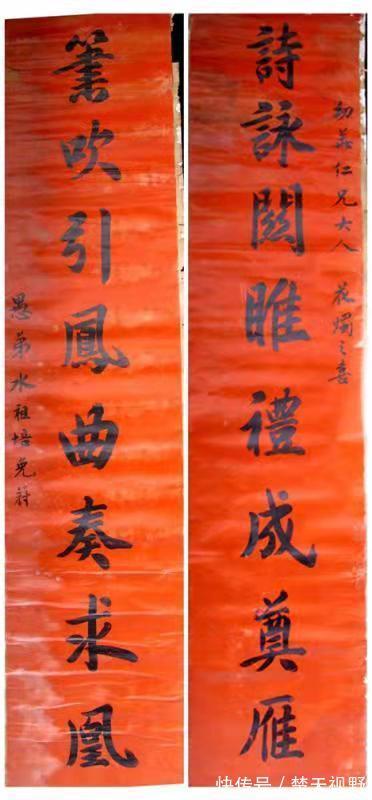 幼仁兄大人 花燭之喜
詩詠關雎禮成奠雁
簫吹引鳳曲奏求凰
愚弟水祖培
快传号／楚天视野